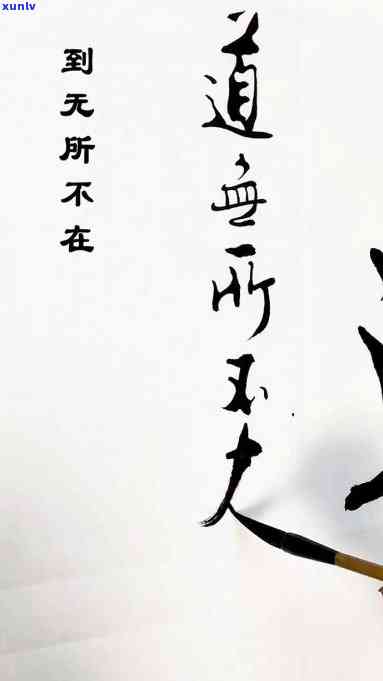 xunlv
道無所不
到无所不在